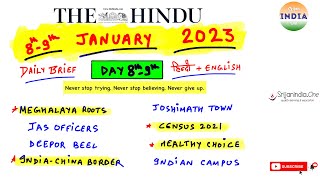 THE HINDU
INDIA
8th-9th JANUARY 2023
DAILY BRIEF DAY 8th-9th हिन्दी + ENGLISH
Never stop trying. Never stop believing. Never give up.
MEGHALAYA ROOTS JOSHIMATH TOWN
Srijanindia.One
IAS OFFICERS * CENSUS 2021
DEEPOR BEEL * HEALTHY CHOICE
INDIA-CHINA BORDER INDIAN CAMPUS
SUBSCRIBE